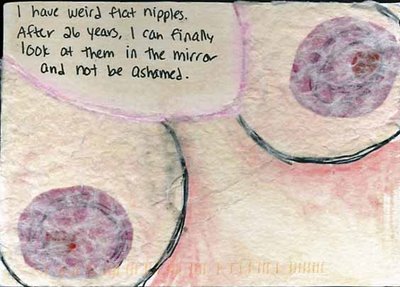 I have weird flat nipples.
After 26 years, I can finally
look at them in the mirror
and not be ashamed.